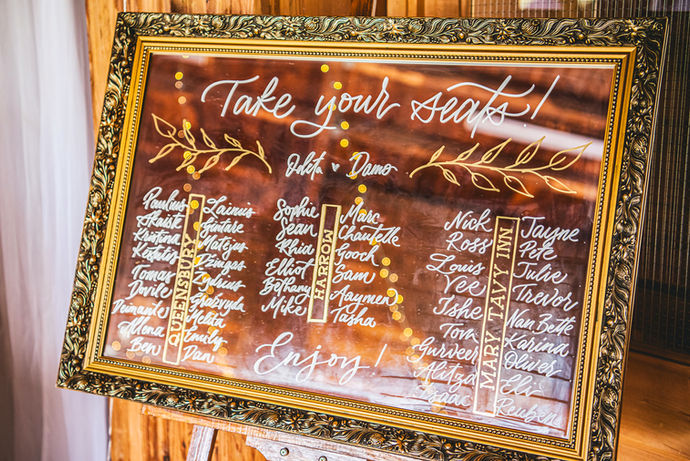 Take your seats!
Odeta ♥ Damo
QUEENSBURY
Paulius
Akaiste
Kristina
Kestutis
Tomas
Dovile
Deimante
Milena
Ben
Lainius
Gintare
Matejus
Dzingas
Zydrius
Grazvyda
Meida
Emily
Dan
HARROW
Sophie
Sean
Rhia
Elliot
Bethany
Mike
Marc
Chantelle
Gooch
Sam
Aaymen
Tasha
MARY TAVY INN
Nick
Ross
Louis
Vee
Ishe
Tom
Gurveer
Alitza
Isaac
Jayne
Pete
Julie
Trevor
Nan Bette
Karina
Oliver
Eli
Reuben
Enjoy!